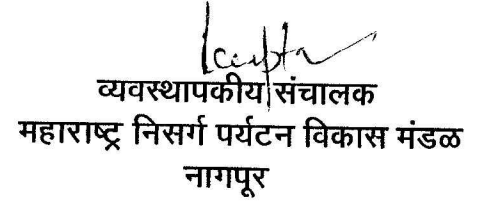 व्यवस्थापकीय संचालक
महाराष्ट्र निसर्ग पर्यटन विकास मंडळ
नागपूर